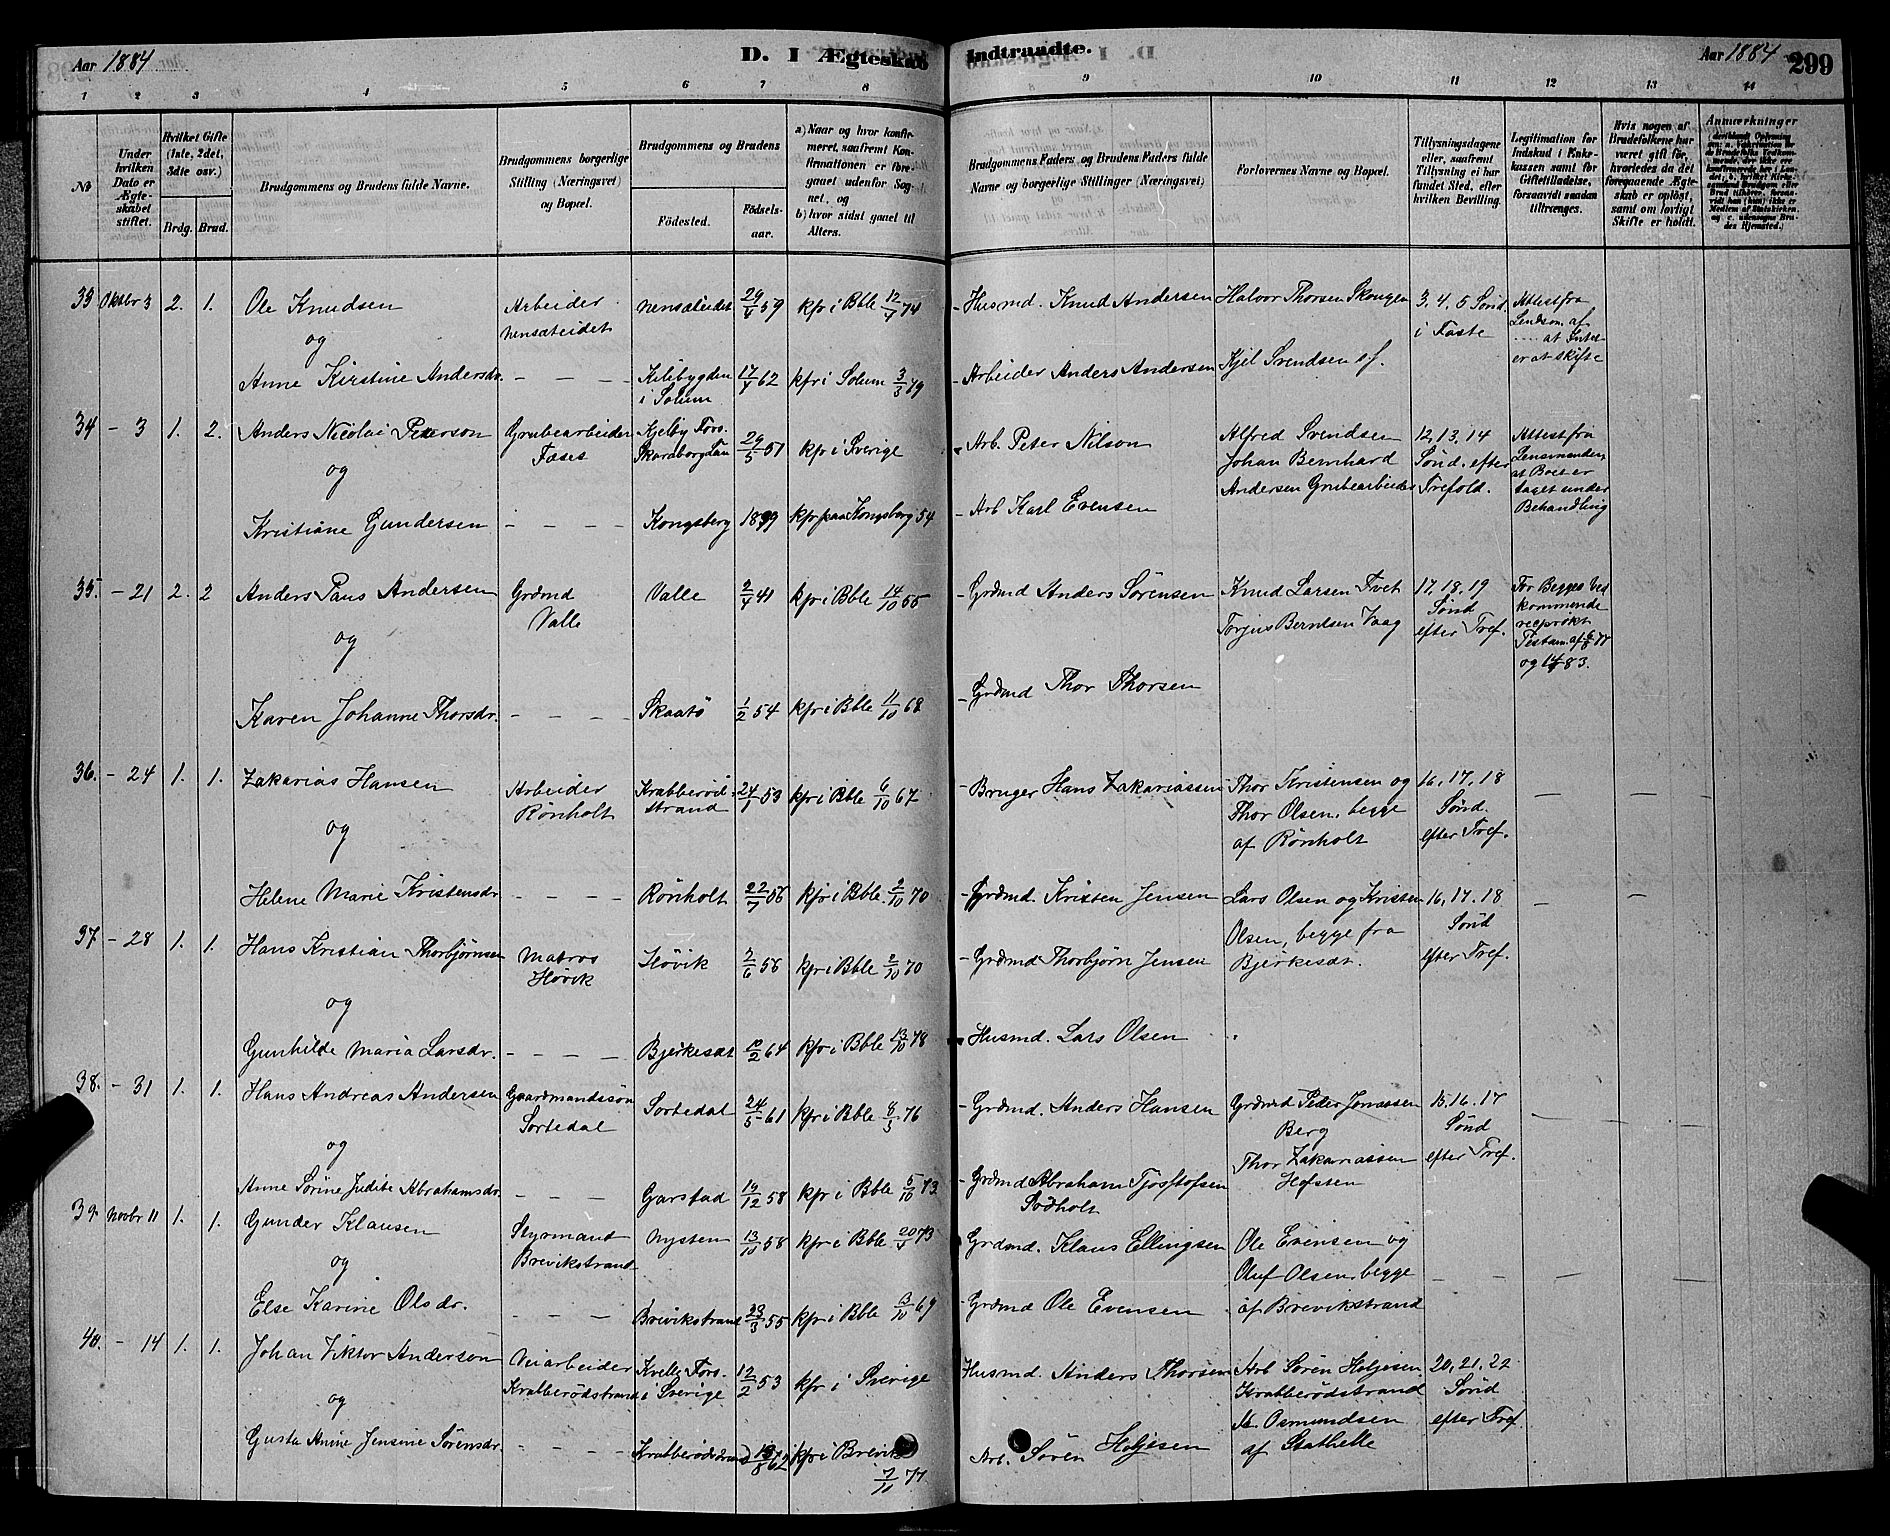 Aar 1884
D. I Ægteskab
Indtraadte.
Aar 1884
299
1 2 3 4 5 6 7 8 9 10 11 12 13 14
No
Under hvilken Dato er Ægteskabet stiftet.
Hvilket Gifte (1ste, 2det, 3dte osv.)
Brdg. Brud.
Brudgommens og Brudens fulde Navne.
Brudgommens borgerlige Stilling (Næringsvei) og Bopæl.
Brudgommens og Brudens
Fødested.
Fødselsaar.
a) Naar og hvor konfirmeret, saafremt Konfirmationen er foregaaet udenfor Sognet, og
b) hvor sidst gaaet til Alters.
Brudgommens Faders og Brudens Faders fulde Navne og borgerlige Stillinger (Næringsvei)
Forlovernes Navne og Bopæl.
Tillysningsdagene eller, saafremt Tillysning ei har fundet Sted, efter hvilken Bevilling.
Legitimation for Indskud i Enkekassen samt for Giftetilladelse, forsaavidt saadan tiltrænges.
Hvis nogen af Brudefolkene har været gift før, hvorledes da det foregaaende Ægteskab er opløst, samt om lovligt Skifte er holdt.
Anmærkninger
33 Oktbr 3 2. 1. Ole Knudsen Arbeider Nensæteidet Nensæteidet 29/4 59 kfr i Bble 12/4 74 Husmd. Knud Andersen Halvor Thorsen Skougen 3. 4. 5 Sønd. i Faste Attest fra Lendsm. af at Intet er at skifte
og
Anne Kirstine Andersdr. – – – Kilebygden i Solum 17/4 62 kfr i Solum 3/3 79 Arbeider Anders Andersen Kjel Svendsen
34 – 3 1. 2. Anders Nicolai Peterson Grubearbeider Kjelby Fors. Skaraborg Län 29/5 51 kfr i Sverige Arb. Peter Nilson Alfred Svendsen Johan Bernhard Andersen Grubearbeider 12, 13, 14 Sønd. efter Trefold. Attest fra Lensmanden at Boet er taget under Behandling
og
Kristiane Gundersen – – – Kongsberg kfr paa Kongsberg 54 Arb Karl Evensen
35. – 21 2. 2 Anders Paus Andersen Grdmd Valle Valle 2/4 41 kfr i Bble 14/10 55 Grdmd Anders Sørensen Knud Larsen Tvet Torjus Berntsen Vaag 17, 18, 19 Sønd efter Tref. For Begges Vedkommende reciprokt Testam.
og
Karen Johanne Thorsdr. – – – Skaatø 1/2 54 kfr i Bble 11/10 68 Grdmd Thor Thorsen
36. – 24 1. 1. Zakarias Hansen Arbeider Rönholt Krabberöd strand 24/1 53 kfr i Bble 6/10 67 Bruger Hans Zakariassen Thor Kristensen og Thor Olsen, begge af Rönholt 16, 17, 18 Sönd. efter Tref. – – –
og
Helene Marie Kristensdr. – – – Rönholt 22/7 56 kfr i Bble 2/10 70 Grdmd. Kristen Jensen
37. – 28 1. 1. Hans Kristian Thorbjørnsen Matros Høvik Høvik 2/6 56 kfr i Bble 2/10 70 Grdmd Thorbjørn Jensen Lars Olsen og Kristen Olsen, begge fra Bjerkesæt. 16, 17. 18 Sønd efter Tref. – – –
og
Gunhilde Maria Larsdr. – – – Bjerkesæt 64 kfr i Bble 13/10 78 Husmd. Lars Olsen
38. – 31 1. 1. Hans Andreas Andersen Gaardmandssøn Sortedal Sortedal 24/5 61 kfr i Bble 76 Grdmd. Anders Hansen Grdmd Peder Jonassen Berg Thor Zakariassen Hofsten 15. 16. 17 Sønd efter Tref. – – –
og
Anne Sørine Judithe Abrahamsdr. – – – Garstad 19/12 58 kfr i Bble 5/10 73 Grdmd Abraham Tjostofsen Rødholt
39. Novbr 11 1. 1. Gunder Klausen Styrmand Brevikstrand Nysten 13/10 58 kfr i Bble 20/4 73 Grdmd. Klaus Ellingsen Ole Evensen og Oluf Olsen, begge af Brevikstrand – – – –
og
Else Karine Olsdr. – – – Brevikstrand 23/3 55 kfr i Bble 3/10 69 Grdmd Ole Evensen
40. – 14 1. 1. Johan Viktor Anderson Veiarbeider Krabberødstrand Fors. i Sverige 12/2 53 kfr i Sverige Husmd. Anders Thorsen Arb Søren Holjesen Krabberødstrand Osmundsen af Stathelle 20, 21, 22 Sønd efter Tref
og
Gusta Anine Jensine Sørensdr. – – – Krabberødstrand 62 kfr i Brevik 7/11 77 Arb. Søren Holjesen